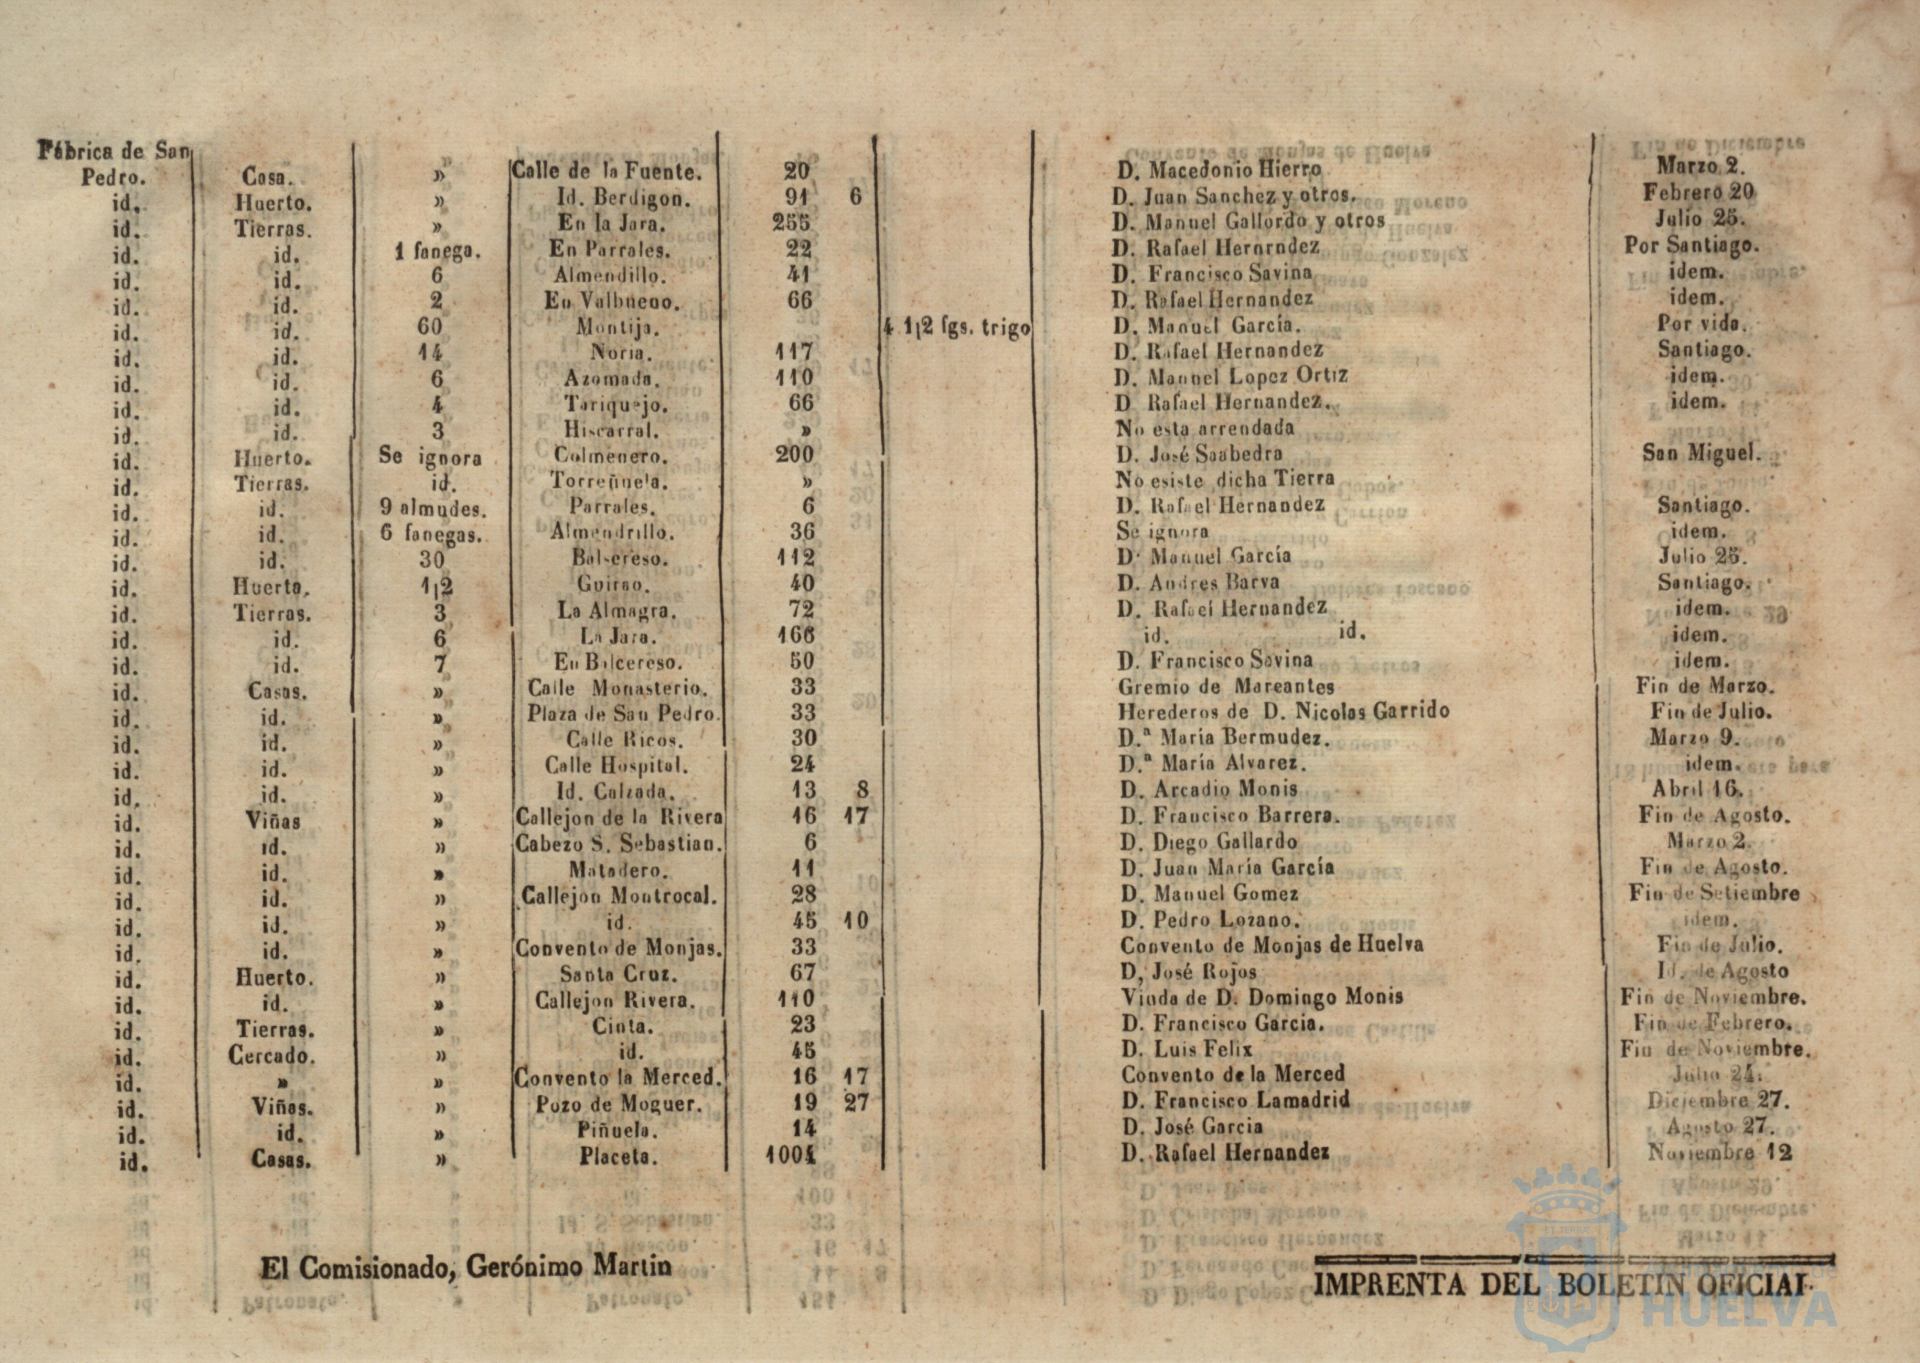 Fábrica de San
Pedro. Casa. » Calle de la Fuente. 20 D. Macedonio Hierro Marzo 2.
id. Huerto. » Id. Berdigon. 91 6 D. Juan Sanchez y otros. Febrero 20
id. Tierras. » En la Jara. 255 D. Manuel Gallordo y otros Julio 25.
id. id. 1 fanega. En Parrales. 22 D. Rafael Hernrndez Por Santiago.
id. id. 6 Almendillo. 41 D. Francisco Savina idem.
id. id. 2 En Valbueno. 66 D. Rafael Hernandez idem.
id. id. 60 Montija. 4 1¡2 fgs. trigo D. Manuel García. Por vida.
id. id. 14 Noria. 117 D. Rafael Hernandez Santiago.
id. id. 6 Azomada. 110 D. Manuel Lopez Ortiz idem.
id. id. 4 Tariquejo. 66 D Rafael Hernandez. idem.
id. id. 3 Hiscarral. » No esta arrendada
id. Huerto. Se ignora Colmenero. 200 D. José Saabedra San Miguel.
id. Tierras. id. Torreñuela. » No esiste dicha Tierra
id. id. 9 almudes. Parrales. 6 D. Rafael Hernandez Santiago.
id. id. 6 fanegas. Almendrillo. 36 Se ignora idem.
id. id. 30 Balsereso. 112 D. Manuel García Julio 25.
id. Huerto. 1¡2 Guirao. 40 D. Andres Barva Santiago.
id. Tierras. 3 La Almagra. 72 D. Rafael Hernandez idem.
id. id. 6 La Jara. 166 id. id. idem.
id. id. 7 En Balcereso. 50 D. Francisco Savina idem.
id. Casas. » Calle Monasterio. 33 Gremio de Mareantes Fin de Marzo.
id. id. » Plaza de San Pedro. 33 Herederos de D. Nicolas Garrido Fin de Julio.
id. id. » Calle Ricos. 30 D.ª María Bermudez. Marzo 9.
id. id. » Calle Hospital. 24 D.ª María Alvarez. idem.
id. id. » Id. Calzada. 13 8 D. Arcadio Monis Abril 16.
id. Viñas » Callejon de la Rivera 16 17 D. Francisco Barrera. Fin de Agosto.
id. id. » Cabezo S. Sebastian. 6 D. Diego Gallardo Marzo 2.
id. id. » Matadero. 11 D. Juan María García Fin de Agosto.
id. id. » Callejon Montrocal. 28 D. Manuel Gomez Fin de Setiembre
id. id. » id. 45 10 D. Pedro Lozano. idem.
id. id. » Convento de Monjas. 33 Convento de Monjas de Huelva Fin de Julio.
id. Huerto. » Santa Cruz. 67 D, José Rojos Id. de Agosto
id. id. » Callejon Rivera. 110 Viuda de D. Domingo Monis Fin de Noviembre.
id. Tierras. » Cinta. 23 D. Francisco Garcia. Fin de Febrero.
id. Cercado. » id. 45 D. Luis Felix Fin de Noviembre.
id. » » Convento la Merced. 16 17 Convento de la Merced Julio 24.
id. Viñas. » Pozo de Moguer. 19 27 D. Francisco Lamadrid Diciembre 27.
id. id. » Piñuela. 14 D. José Garcia Agosto 27.
id. Casas. » Placeta. 1004 D. Rafael Hernandez Noviembre 12
El Comisionado, Gerónimo Martin
IMPRENTA DEL BOLETIN OFICIAL
HUELVA